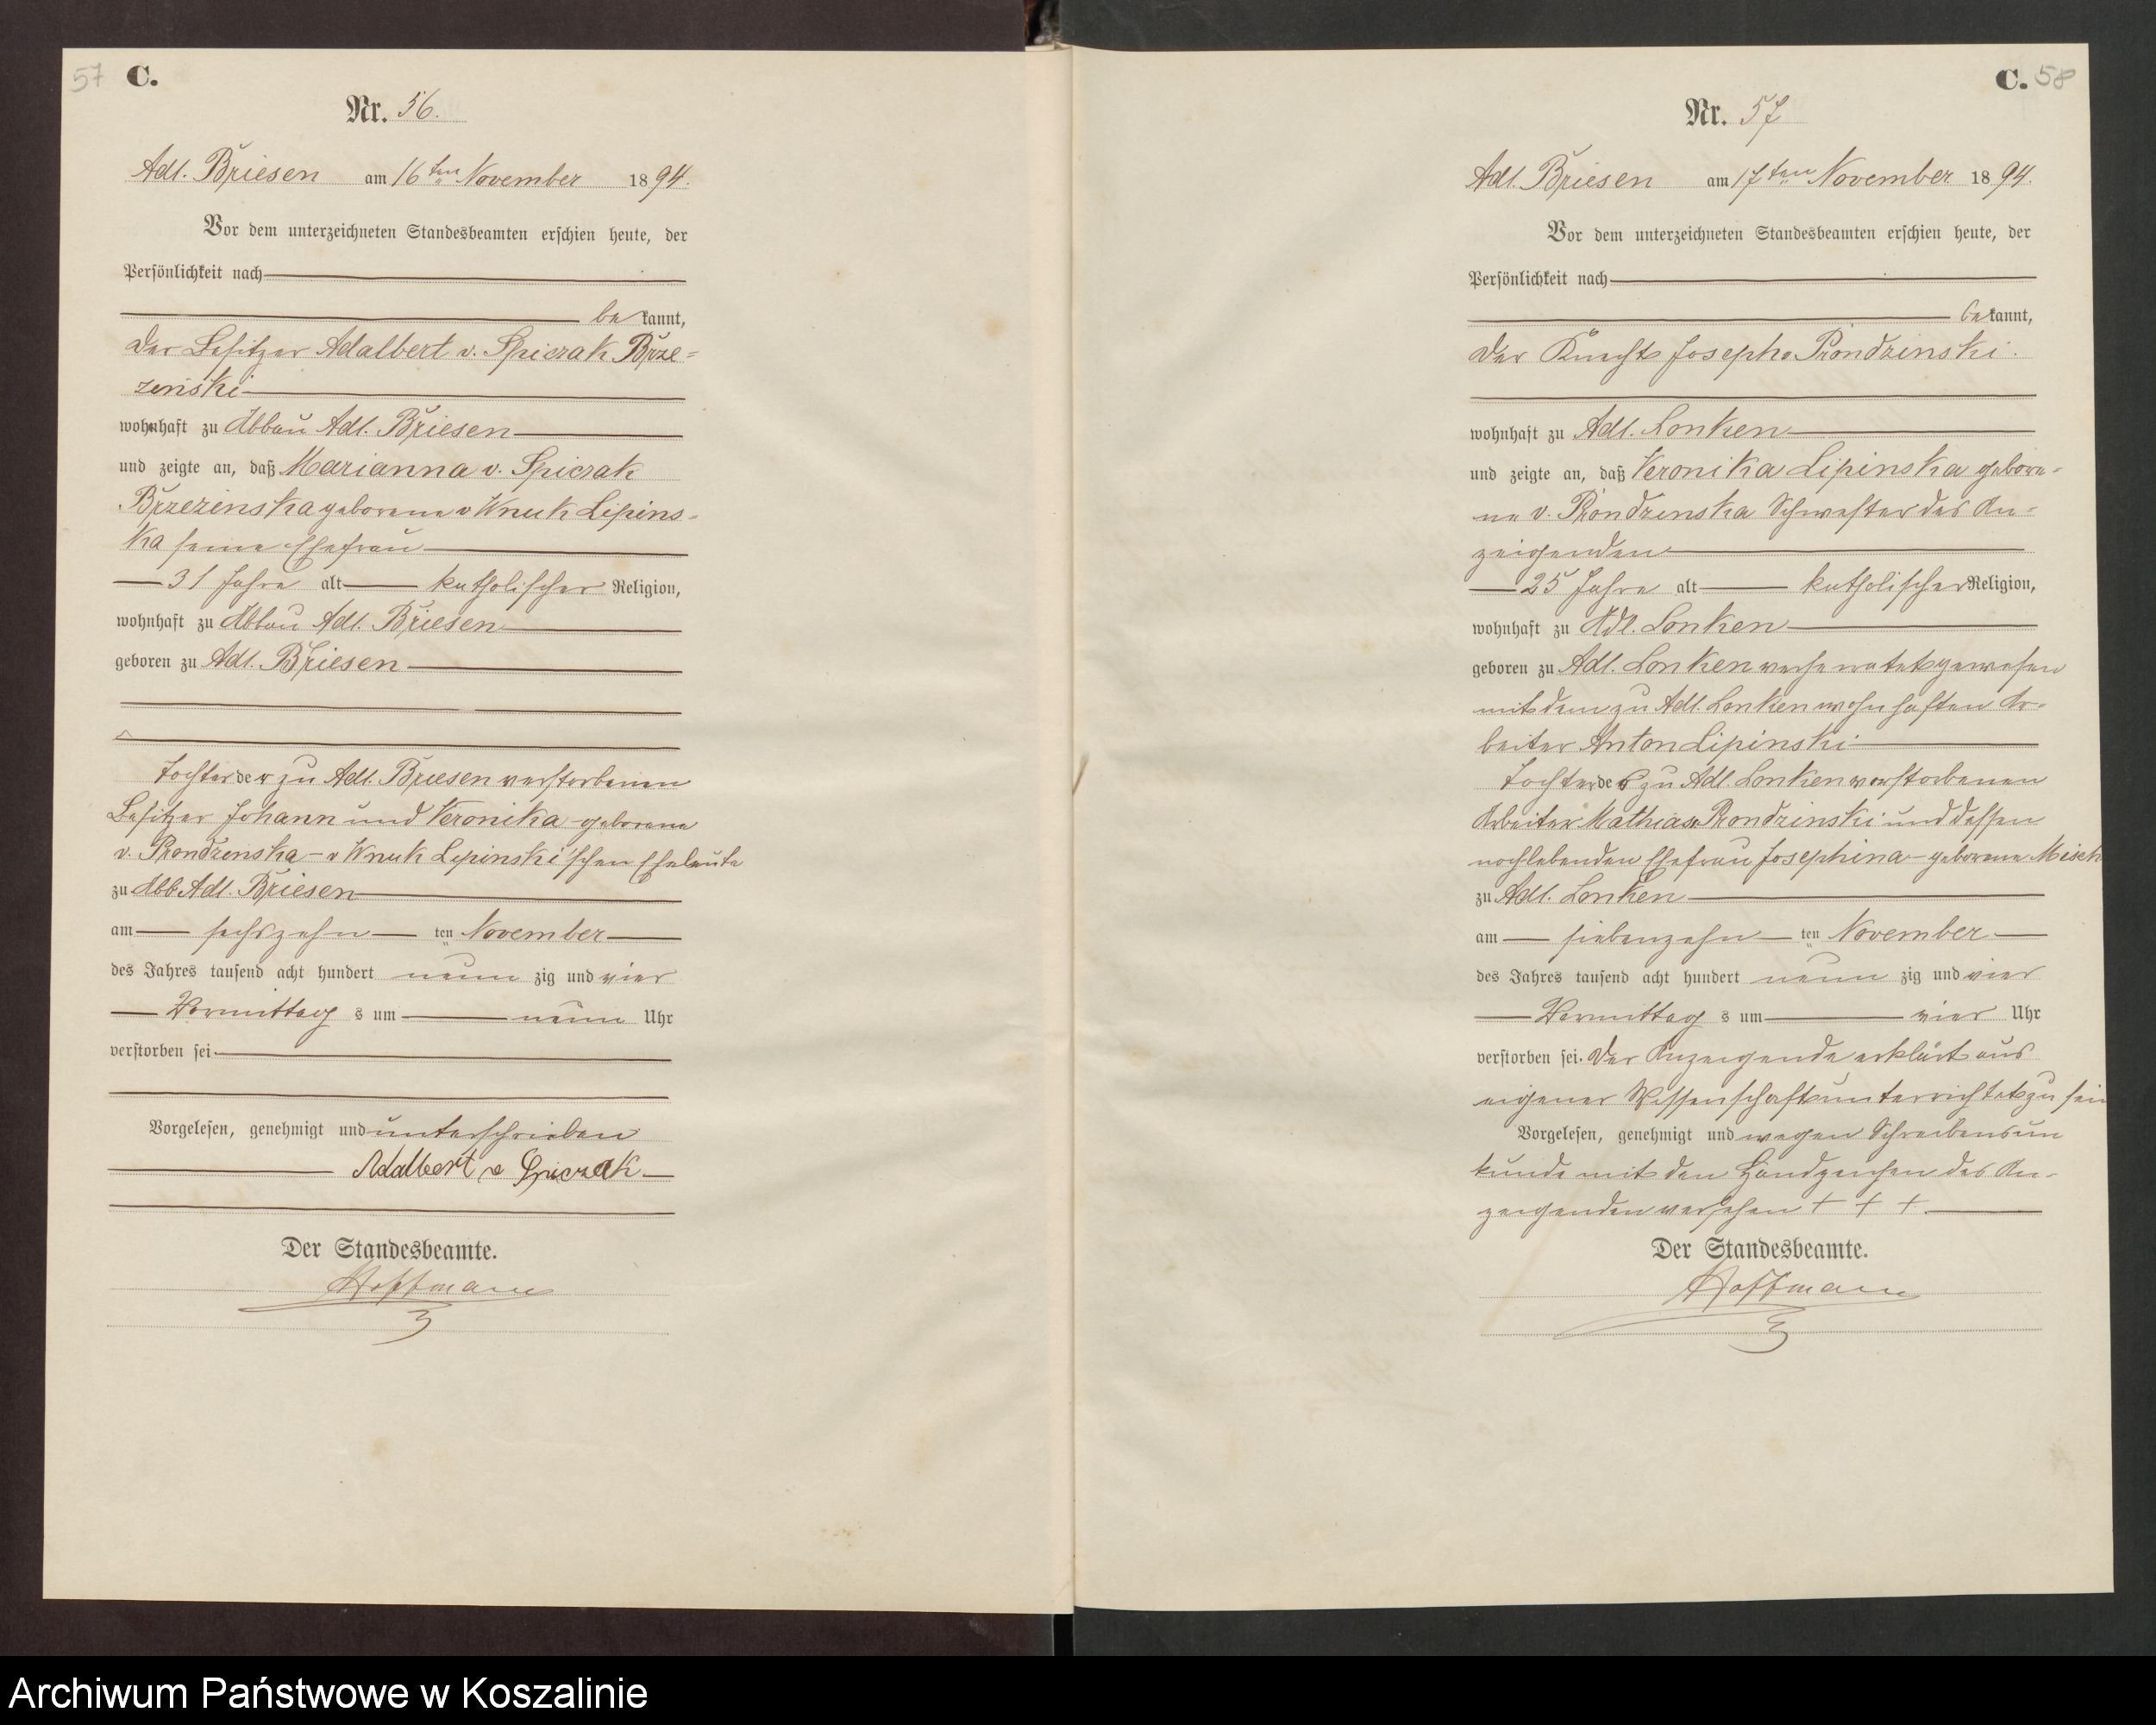 57 C.
Nr. 56.
Adl. Briesen am 16ten November 1894.
Vor dem unterzeichneten Standesbeamten erschien heute, der
Persönlichkeit nach
bekannt,
der Besitzer Adalbert v. Spiczak Brze=
zinski
wohnhaft zu Abbau Adl. Briesen
und zeigte an, daß Marianna v. Spiczak
Brzezinska geborene v Wnuk Lipins-
ka seine Ehefrau
31 Jahre alt katholischer Religion,
wohnhaft zu Abbau Adl. Briesen
geboren zu Adl. Briesen
Tochter der zu Adl. Briesen verstorbenen
Besitzer Johann und Veronika geborene
v. Prondzinska - v Wnuk Lipinski'schen Eheleute
zu Abb. Adl. Briesen
am sechszehn ten November
des Jahres tausend acht hundert neun zig und vier
Vormittag s um neun Uhr
verstorben sei
Vorgelesen, genehmigt und unterschrieben
Adalbert v Spiczak
Der Standesbeamte.
Hoffmann
C. 58
Nr. 57
Adl. Briesen am 17ten November 1894.
Vor dem unterzeichneten Standesbeamten erschien heute, der
Persönlichkeit nach
bekannt,
der Knecht Joseph Prondzinski.
wohnhaft zu Adl. Lonken
und zeigte an, daß Veronika Lipinska gebore-
ne v. Prondzinska Schwester des An-
zeigenden
25 Jahre alt katholischer Religion,
wohnhaft zu Adl. Lonken
geboren zu Adl. Lonken verheiratet gewesen
mit dem zu Adl. Lonken wohnhaften Ar-
beiter Anton Lipinski
Tochter des zu Adl. Lonken verstorbenen
Arbeiter Mathias Prondzinski und dessen
noch lebenden Ehefrau Josephina - geborene Misch
zu Adl. Lonken
am siebenzehn ten November
des Jahres tausend acht hundert neun zig und vier
Vormittag s um vier Uhr
verstorben sei. Der Anzeigende erklärt aus
eigener Wissenschaft unterrichtet zu sein
Vorgelesen, genehmigt und wegen Schreibensun
kunde mit den Handzeichen des An-
zeigenden versehen + + +
Der Standesbeamte.
Hoffmann
Archiwum Państwowe w Koszalinie